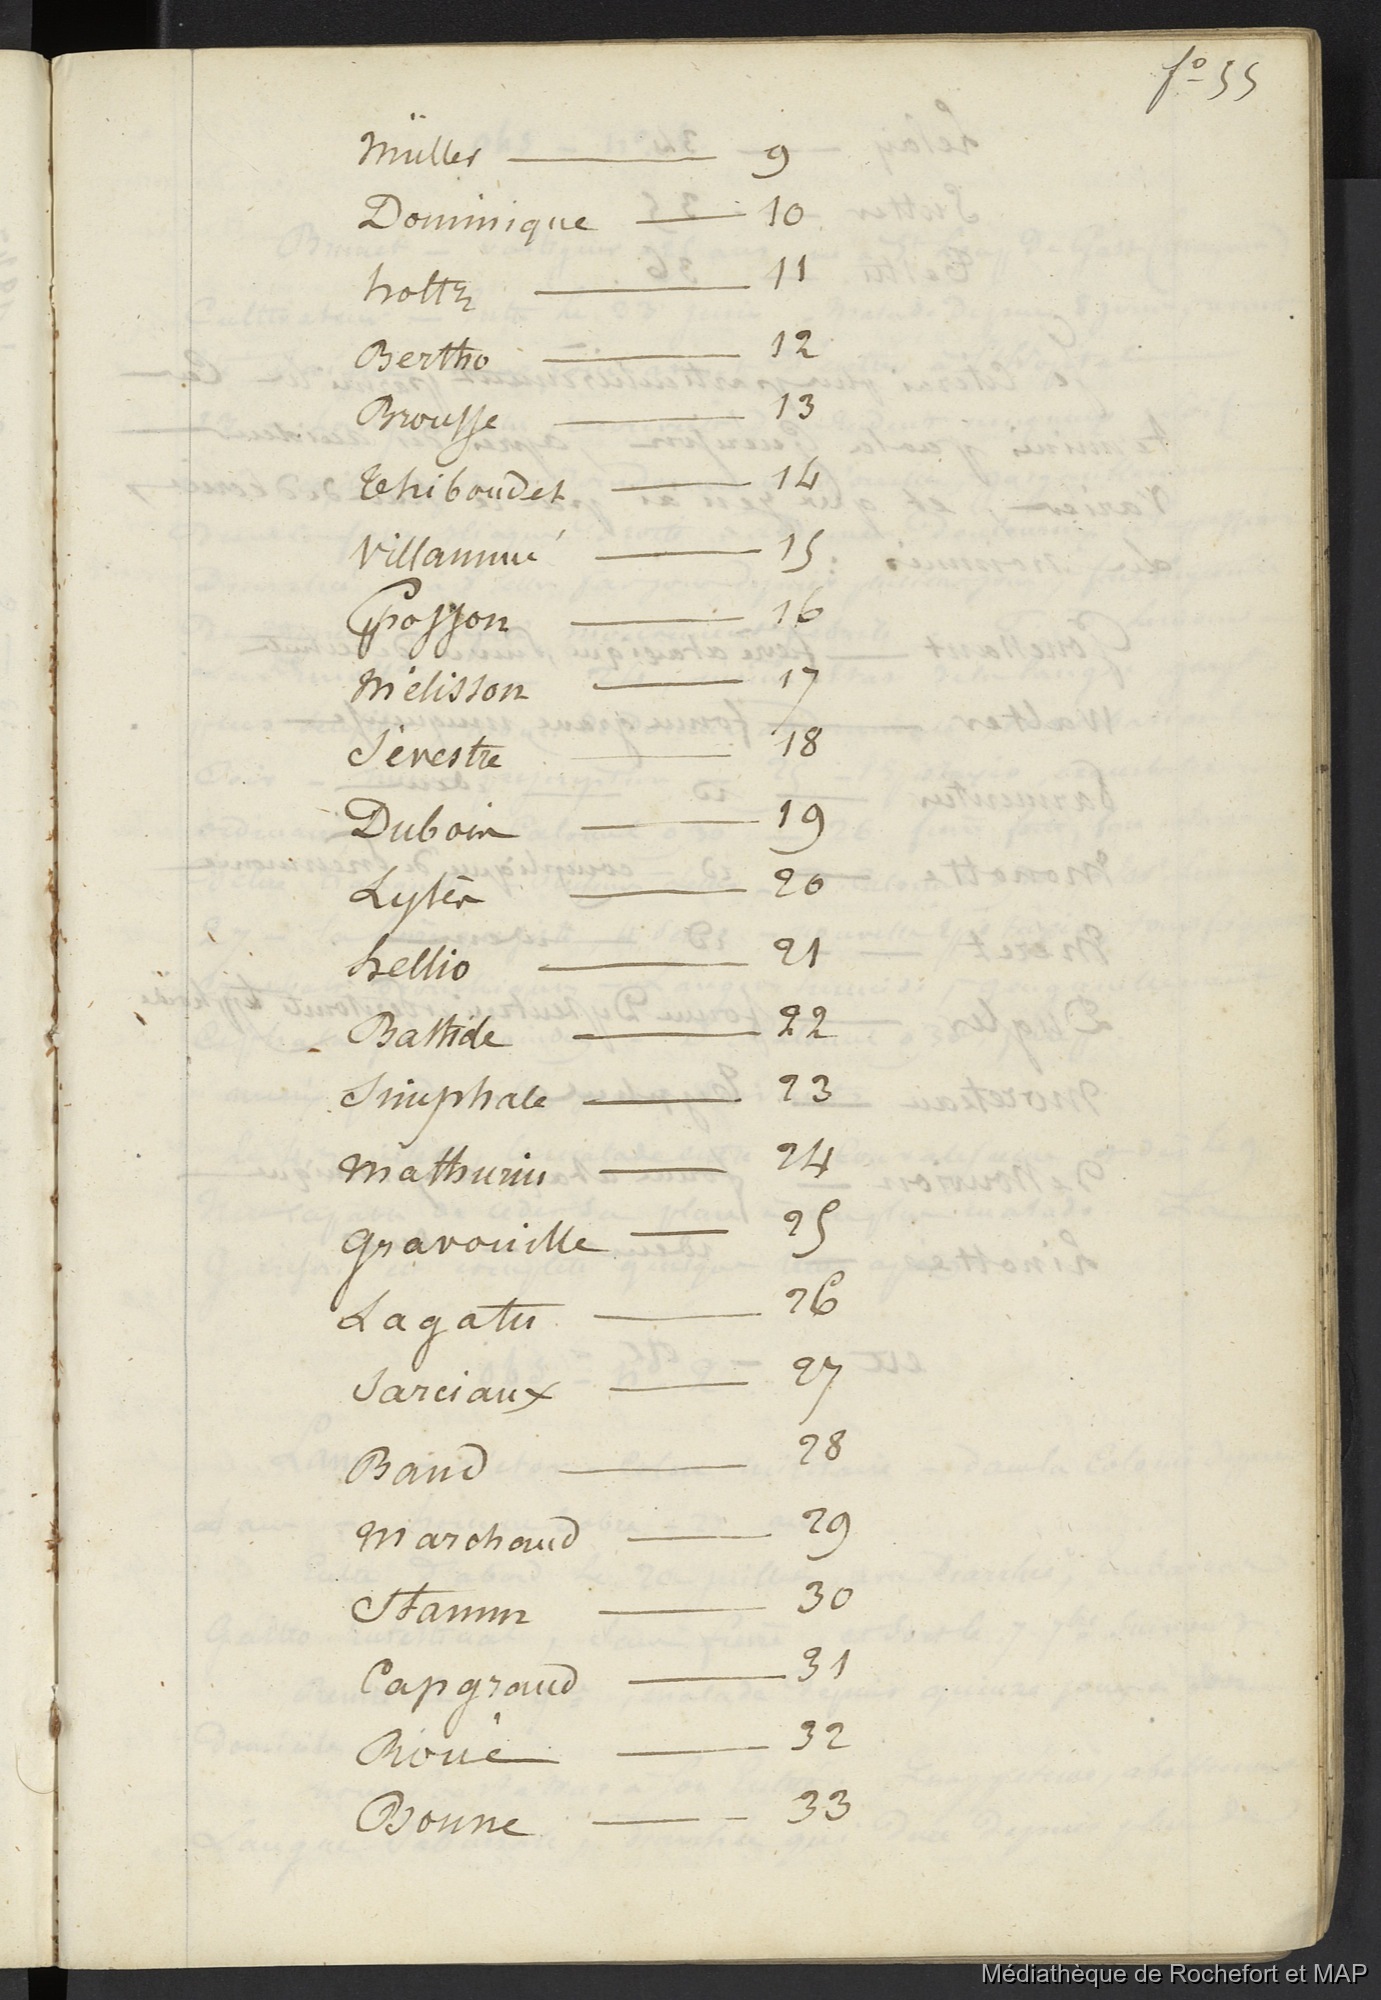 fo 55
Müller — 9
Dominique — 10
holtz — 11
Bertho — 12
Brousse — 13
Thiboudet — 14
Villammé — 15
Posson — 16
Mélisson — 17
Sévestre — 18
Duboin — 19
Lyter — 20
hellio — 21
Bastide — 22
Simphale — 23
Mathurin — 24
Gravouille — 25
Lagatu — 26
Sarciaux — 27
Baud — 28
Marchaud — 29
Stamm — 30
Capgraud — 31
Roué — 32
Bonne — 33
Médiathèque de Rochefort et MAP